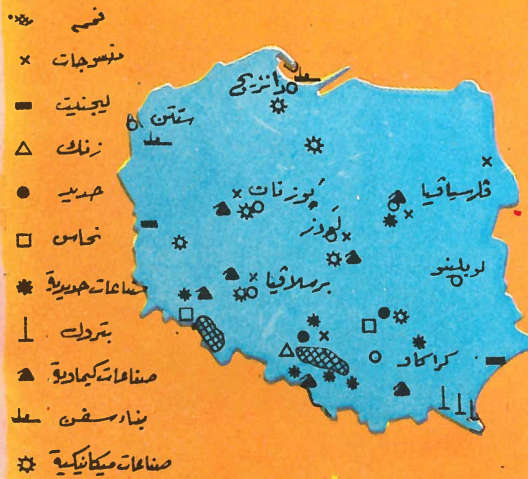 فحم
منسوجات
ليجنيت
زنك
حديد
نحاس
صناعات حديدية
بترول
صناعات كيماوية
بناء سفن
صناعات ميكانيكية
دانزيج
ستتن
بوزنان
لودز
ڤرسياڤيا
برسلاڤيا
لوبلينو
كراكاو